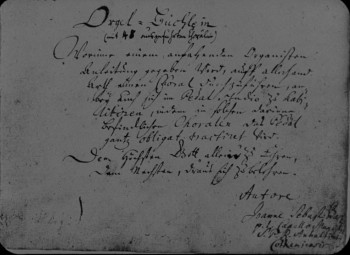 Orgel-Büchlein
(mit 48 ausgeführten Chorälen)
Worinne einem anfahenden Organisten
Anleitung gegeben wird, auff allerhand
Arth einen Choral durchzuführen, an-
bey auch sich im Pedal studio zu habi-
litiren, indem in solchen darinne
befindlichen Choralen das Pedal
gantz obligat tractiret wird.
Dem Höchsten Gott allein' zu Ehren,
Dem Nechsten, draus sich zu belehren.
Autore
Joanne Sebast. Bach
p. t. Capellae Magistri
S. P. R. Anhaltini-
Cotheniensis.